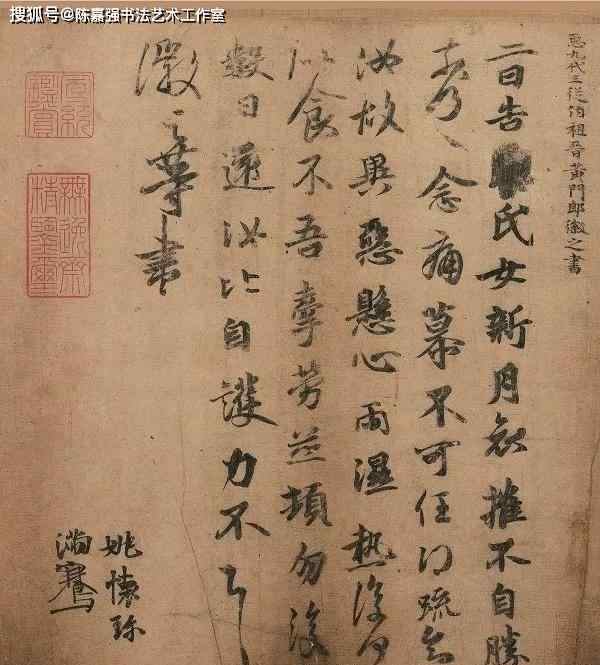 搜狐号@陈嘉强书法艺术工作室
臣九代三從伯祖晉黃門郎徽之書
二日告氏女新月哀摧不自勝
奈何奈何念痛慕不可任得疏知
汝故異惡懸心雨濕熱復何
似食不吾牽勞並頓勿復
數日還汝比自護力不具
徽之等書
宣統鑑賞
無逸齋精鑒璽
姚懷珍
滿騫